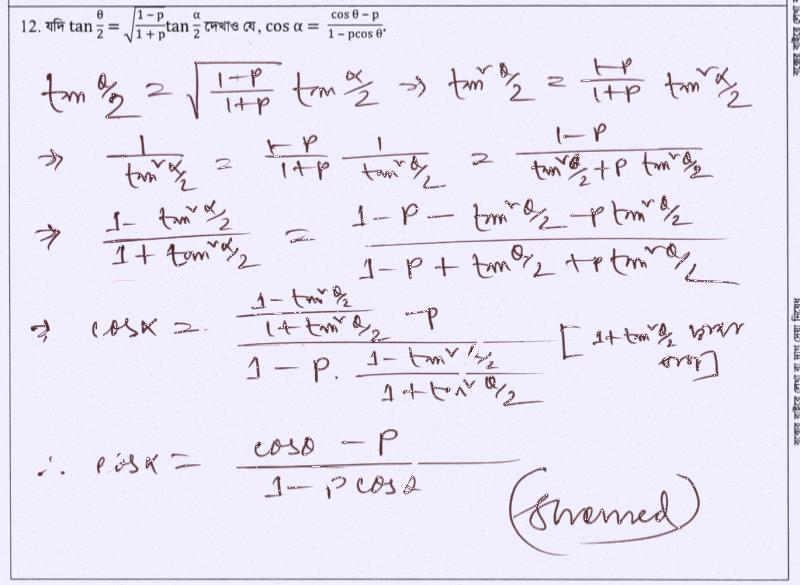 12. যদি tan θ/2 = √((1−p)/(1+p)) tan α/2 দেখাও যে, cos α = (cos θ−p)/(1−pcos θ).
tan θ/2 = √((1−p)/(1+p)) tan α/2 ⇒ tan² θ/2 = (1−p)/(1+p) tan² α/2
⇒ 1/(tan² α/2) = (1−p)/(1+p) 1/(tan² θ/2) = (1−p)/(tan² θ/2 + p tan² θ/2)
⇒ (1− tan² α/2)/(1+ tan² α/2) = (1−p − tan² θ/2 − p tan² θ/2)/(1−p + tan θ/2 + p tan² θ/2)
⇒ cosα = ((1−tan² θ/2)/(1+tan² θ/2) −p)/(1 − p. (1−tan² θ/2)/(1+tan² θ/2)) [1+tan² θ/2 দ্বারা
ভাগ]
∴ cosα = (cosθ − p)/(1− p cosθ)
(showed)